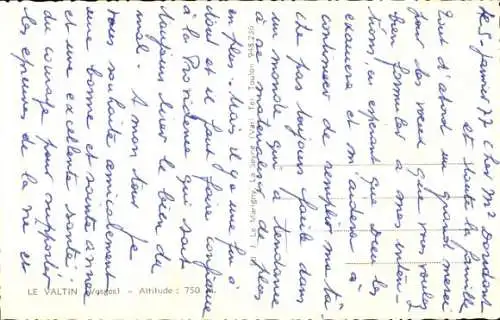 le 5-janvier 77 Cher Mr Dordant
et toute la famille
Tout d'abord un grand merci
pour des voeux que vous voulez
bien formuler à mes inten-
tions, en espérant que Dieu les
exaucera et m'aidera à
continuer de remplir ma tâ-
che pas toujours facile dans
un monde qui a tendance
à de plus
en plus. Mais il y a une fin à
tout et il faut faire confiance
à la Providence qui sait
toujours tirer le bien du
mal. A mon tour je
vous souhaite amicalement
une bonne et sainte année
et une excellente santé,
du courage pour supporter
les épreuves de la vie et
LE VALTIN (Vosges) - Altitude : 750 m.